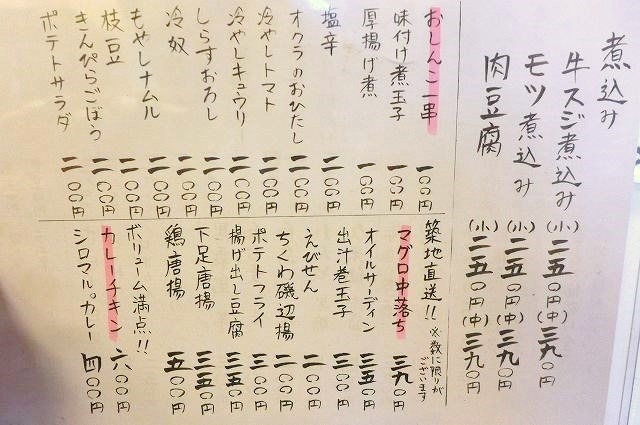 煮込み
牛スジ煮込み (小)二五〇円 (中)三九〇円
モツ煮込み (小)二五〇円 (中)三九〇円
肉豆腐 (小)二五〇円 (中)三九〇円
おしんこ一串 一〇〇円
味付け煮玉子 一〇〇円
厚揚げ煮 一〇〇円
塩辛 二〇〇円
オクラのおひたし 二〇〇円
冷やしトマト 二〇〇円
冷やしキュウリ 二〇〇円
しらすおろし 二〇〇円
冷奴 二〇〇円
もやしナムル 二〇〇円
枝豆 二〇〇円
きんぴらごぼう 二〇〇円
ポテトサラダ 二〇〇円
築地直送!! ※数に限りがございます
マグロ中落ち 三九〇円
オイルサーディン 三五〇円
出汁巻玉子 二〇〇円
えびせん 二〇〇円
ちくわ磯辺揚 二〇〇円
ポテトフライ 三〇〇円
揚げ出し豆腐 三五〇円
下足唐揚 三五〇円
鶏唐揚 五〇〇円
ボリューム満点!!
カレーチキン 六〇〇円
シロマル。カレー 四〇〇円